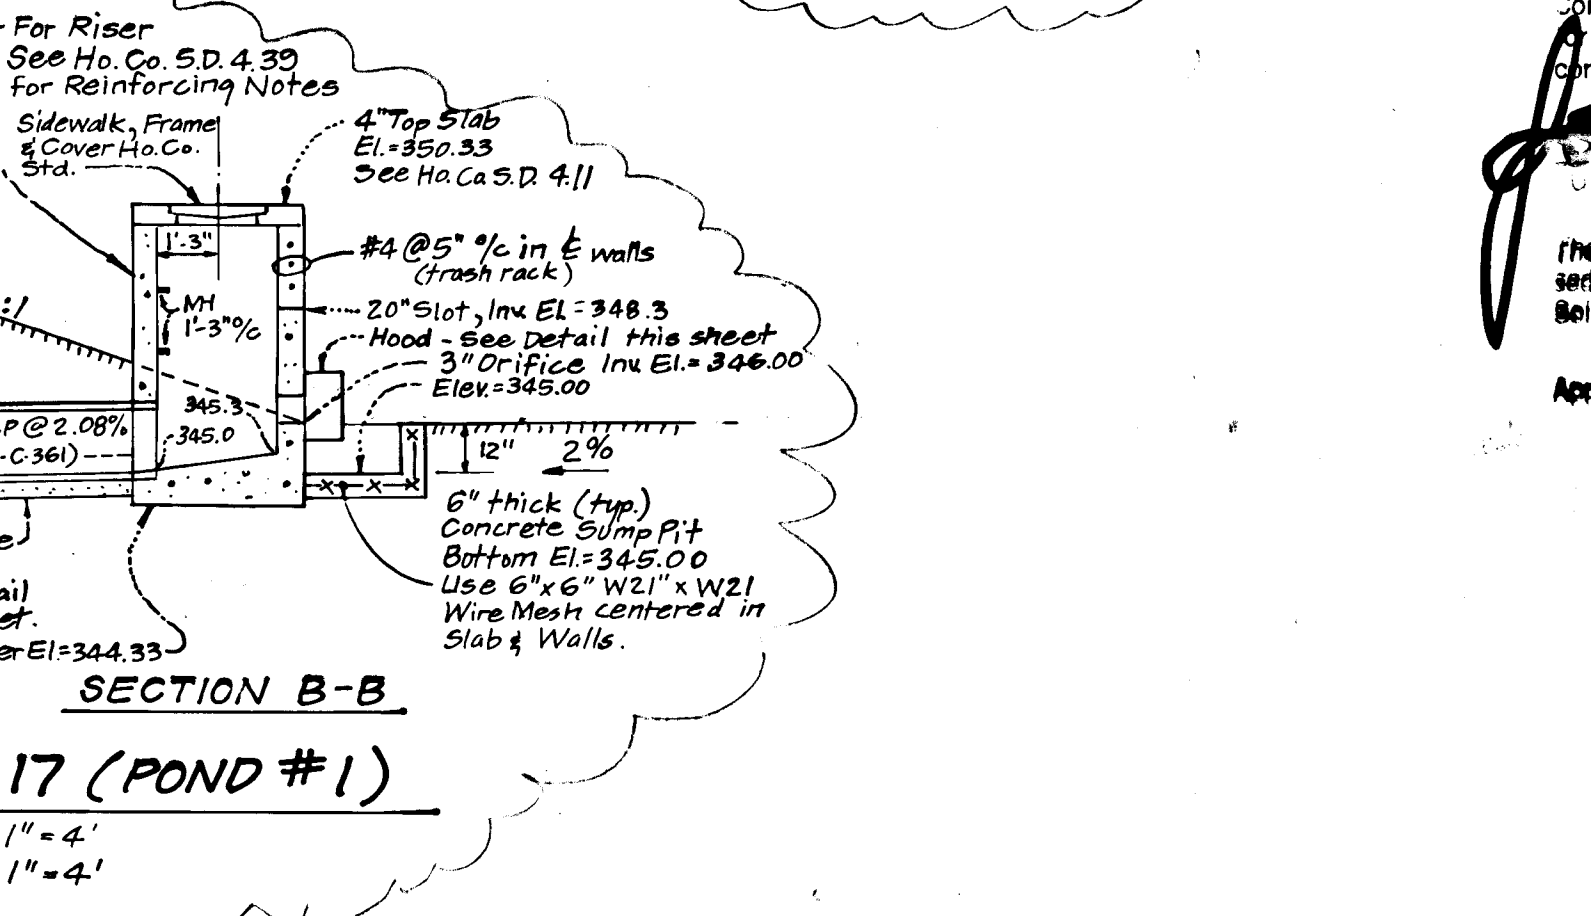 For Riser
See Ho. Co. S.D. 4.39
for Reinforcing Notes
Sidewalk, Frame
& Cover Ho.Co.
Std.
4" Top Slab
El.=350.33
See Ho. Co S.D. 4.11
1'-3"
#4 @ 5" o/c in ℄ walls
(trash rack)
MH
1'-3" o/c
20" Slot, Inv. El.=348.3
Hood - See Detail this sheet
3" Orifice Inv. El.=346.00
Elev.=345.00
:1
345.3
345.0
P @ 2.08%
-C-361)
12"
2%
6" thick (typ.)
Concrete Sump Pit
Bottom El.=345.00
Use 6"x6" W21"x W21
Wire Mesh centered in
Slab & Walls.
ail
et.
er El.=344.33
SECTION B-B
17 (POND #1)
1"=4'
1"=4'